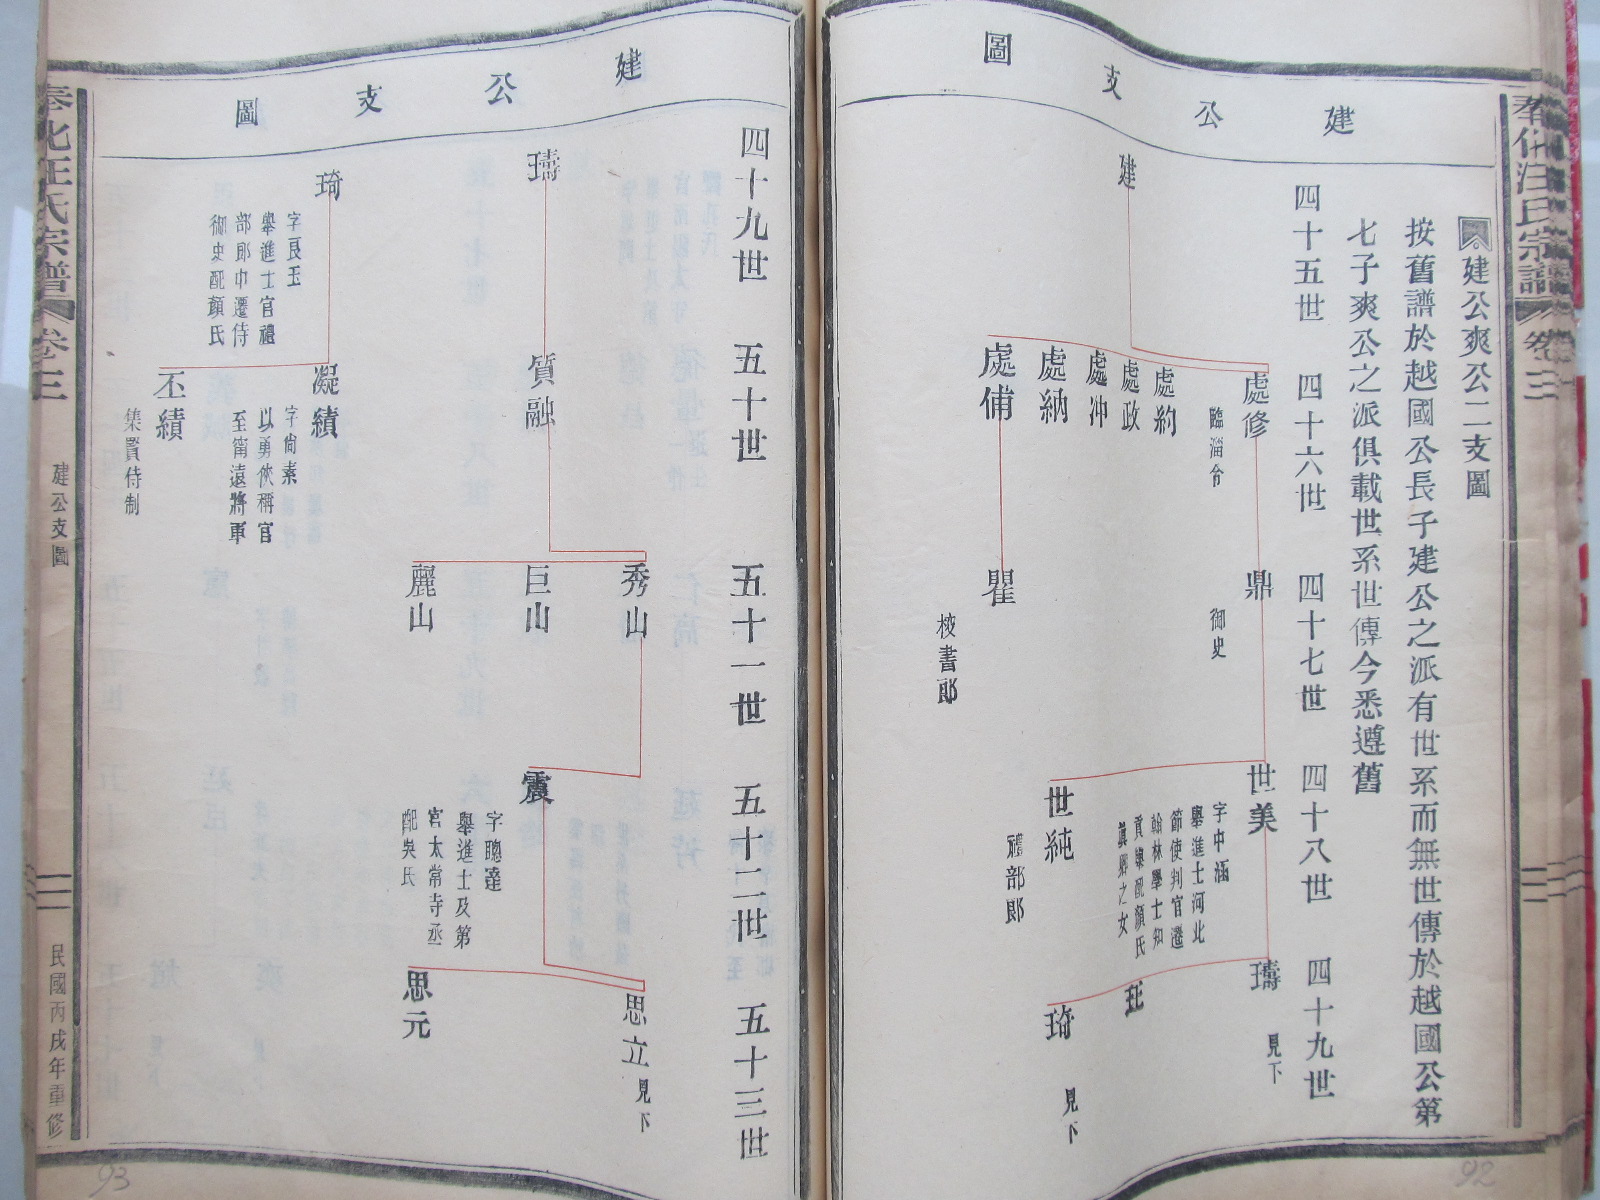 奉化汪氏宗譜
卷三
建公支圖
建公爽公二支圖
按舊譜於越國公長子建公之派有世系而無世傳於越國公第
七子爽公之派俱載世系世傳今悉遵舊
四十五世 四十六世 四十七世 四十八世 四十九世
建
處修
臨淄令
處約
處政
處沖
處納
處俌
鼎
御史
瞿
校書郎
世美
字中涵
舉進士河北
節使判官遷
翰林學士知
貢舉配顏氏
真卿之女
世純
禮部郎
璹
見下
玨
琦
見下
92
建公支圖
四十九世 五十世 五十一世 五十二世 五十三世
璹
質融
秀山
巨山
麗山
震
字聰達
舉進士及第
官太常寺丞
配吳氏
思立
見下
思元
琦
字良玉
舉進士官禮
部郎中遷侍
御史配顏氏
凝績
字尚素
以勇俠稱官
至甯遠將軍
丕績
集賢侍制
奉化汪氏宗譜
卷三
建公支圖
民國丙戌年重修
93